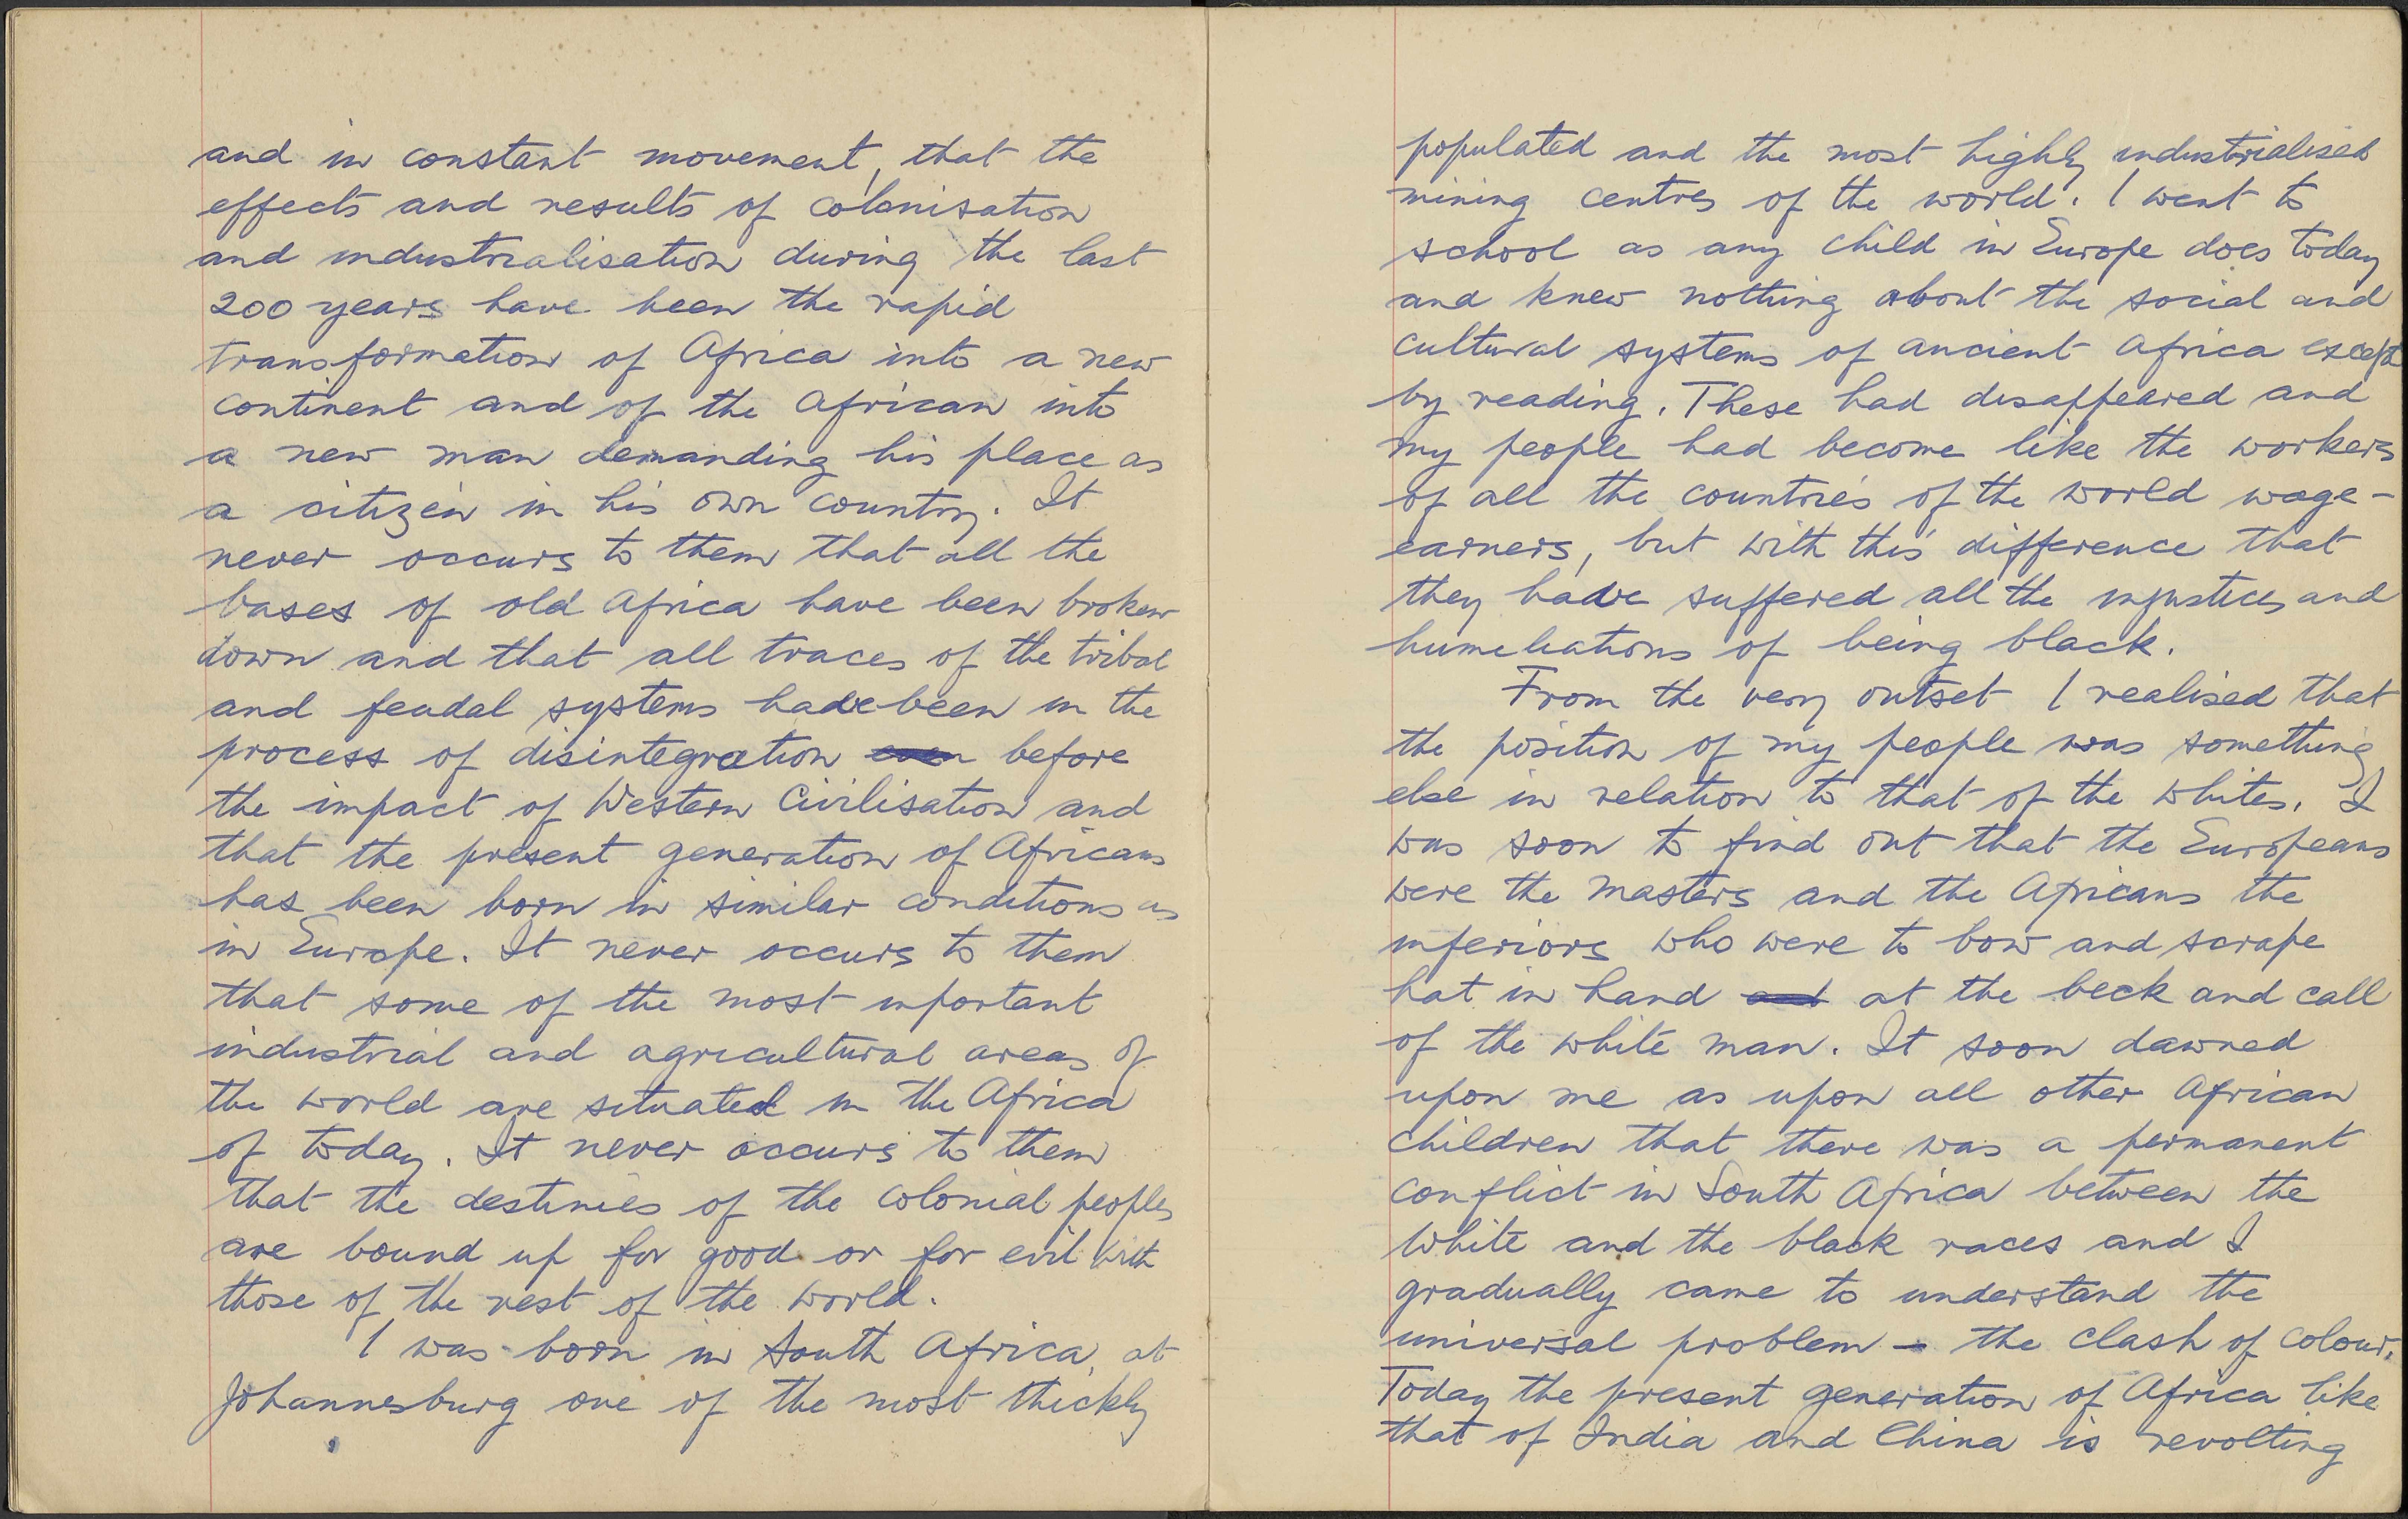 and in constant movement, that the
effects and results of colonisation
and industrialisation during the last
200 years have been the rapid
transformation of Africa into a new
continent and of the African into
a new man demanding his place as
a citizen in his own country. It
never occurs to them that all the
bases of old Africa have been broken
down and that all traces of the tribal
and feudal systems have been in the
process of disintegration even before
the impact of Western Civilisation and
that the present generation of Africans
has been born in similar conditions as
in Europe. It never occurs to them
that some of the most important
industrial and agricultural areas of
the world are situated in the Africa
of today. It never occurs to them
that the destinies of the colonial peoples
are bound up for good or for evil with
those of the rest of the world.
I was born in South Africa, at
Johannesburg one of the most thickly
populated and the most highly industrialised
mining centres of the world. I went to
school as any child in Europe does today
and knew nothing about the social and
cultural systems of ancient Africa except
by reading. These had disappeared and
my people had become like the workers
of all the countries of the world wage-
earners, but with this difference that
they have suffered all the injustices and
humiliations of being black.
From the very outset I realised that
the position of my people was something
else in relation to that of the whites. I
was soon to find out that the Europeans
were the masters and the Africans the
inferiors who were to bow and scrape
hat in hand and at the beck and call
of the white man. It soon dawned
upon me as upon all other African
children that there was a permanent
conflict in South Africa between the
white and the black races and I
gradually came to understand the
universal problem - the clash of colour.
Today the present generation of Africa like
that of India and China is revolting